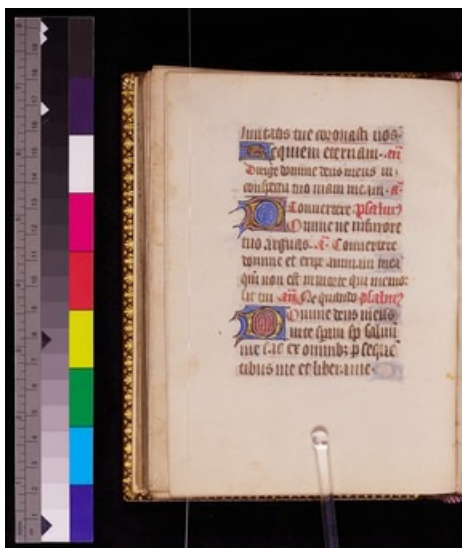 nitatis tue coronasti nos.
Requiem eternam. añ
Dirige domine deus meus in
conspectu tuo viam meam. a
Convertere psalmus
Domine ne in furore
tuo arguas. a Convertere
domine et eripe animam mea
qm̄ non est in morte qui memor
sit tui añ Ne quando psalmus
Domine deus meus
in te spavi sp salvū
me fac ex omnibz p seque
tibus me et libera me